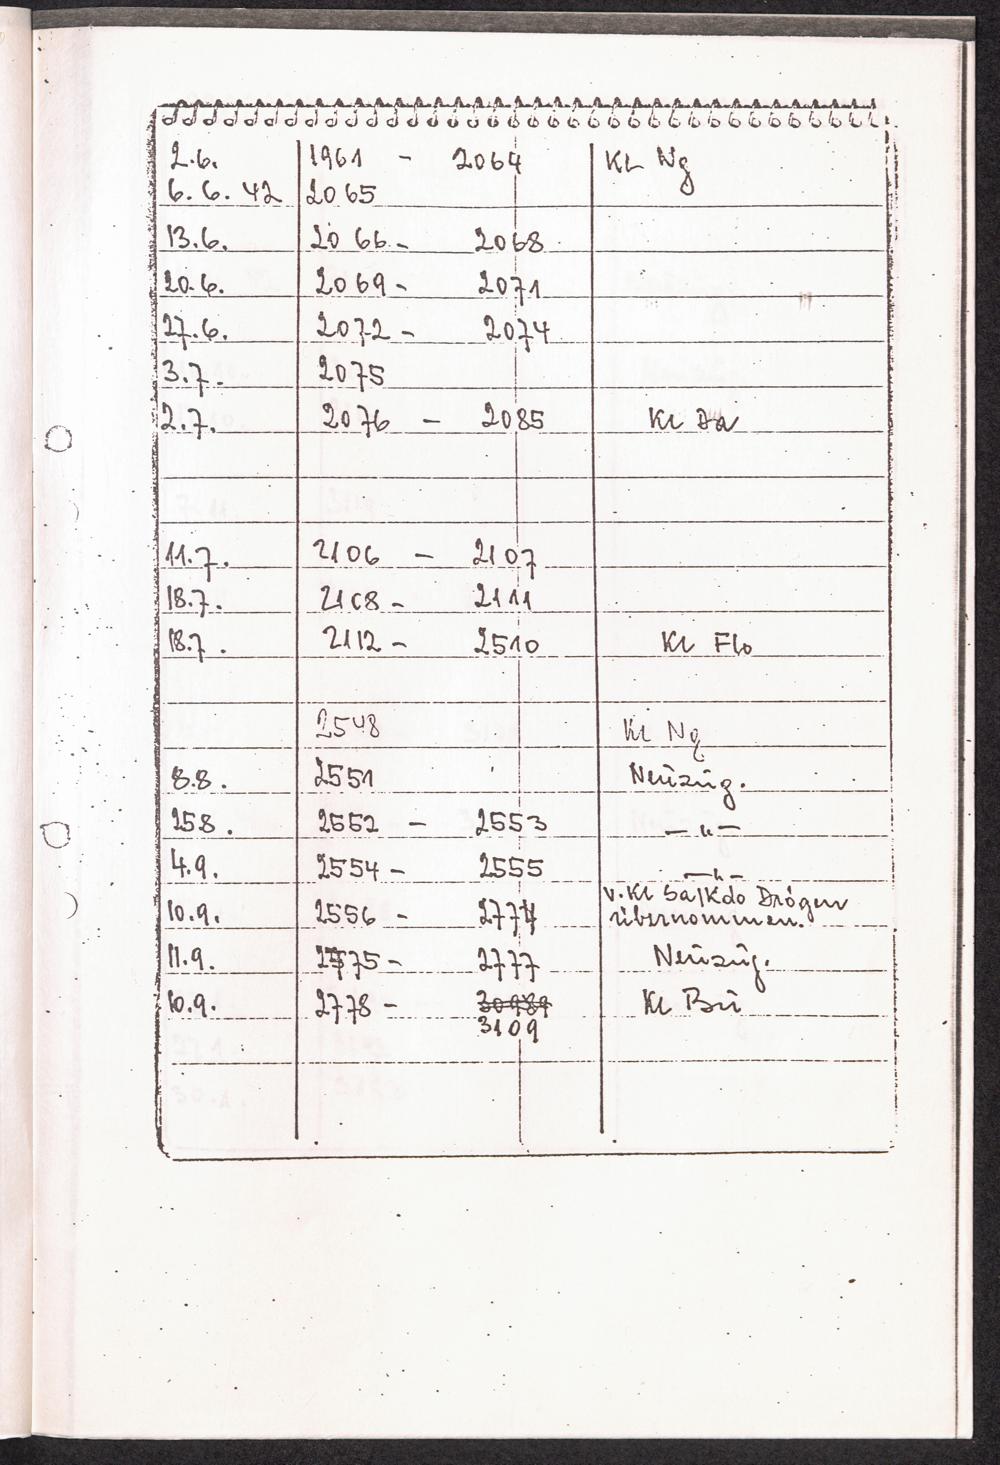 2.6. 1961 - 2064 KL Ng
6.6.42 2065
13.6. 2066 - 2068
20.6. 2069 - 2071
27.6. 2072 - 2074
3.7. 2075
2.7. 2076 - 2085 KL Da
11.7. 2106 - 2107
18.7. 2108 - 2111
18.7. 2112 - 2510 KL Flo
2548 KL Ng
8.8. 2551 Neüzüg.
25.8. 2552 - 2553 — " —
4.9. 2554 - 2555 — " —
v. KL Sa/Kdo Drögen
10.9. 2556 - 2774 übernommen.
11.9. 2775 - 2777 Neüzüg.
10.9. 2778 - KL Bü
3109